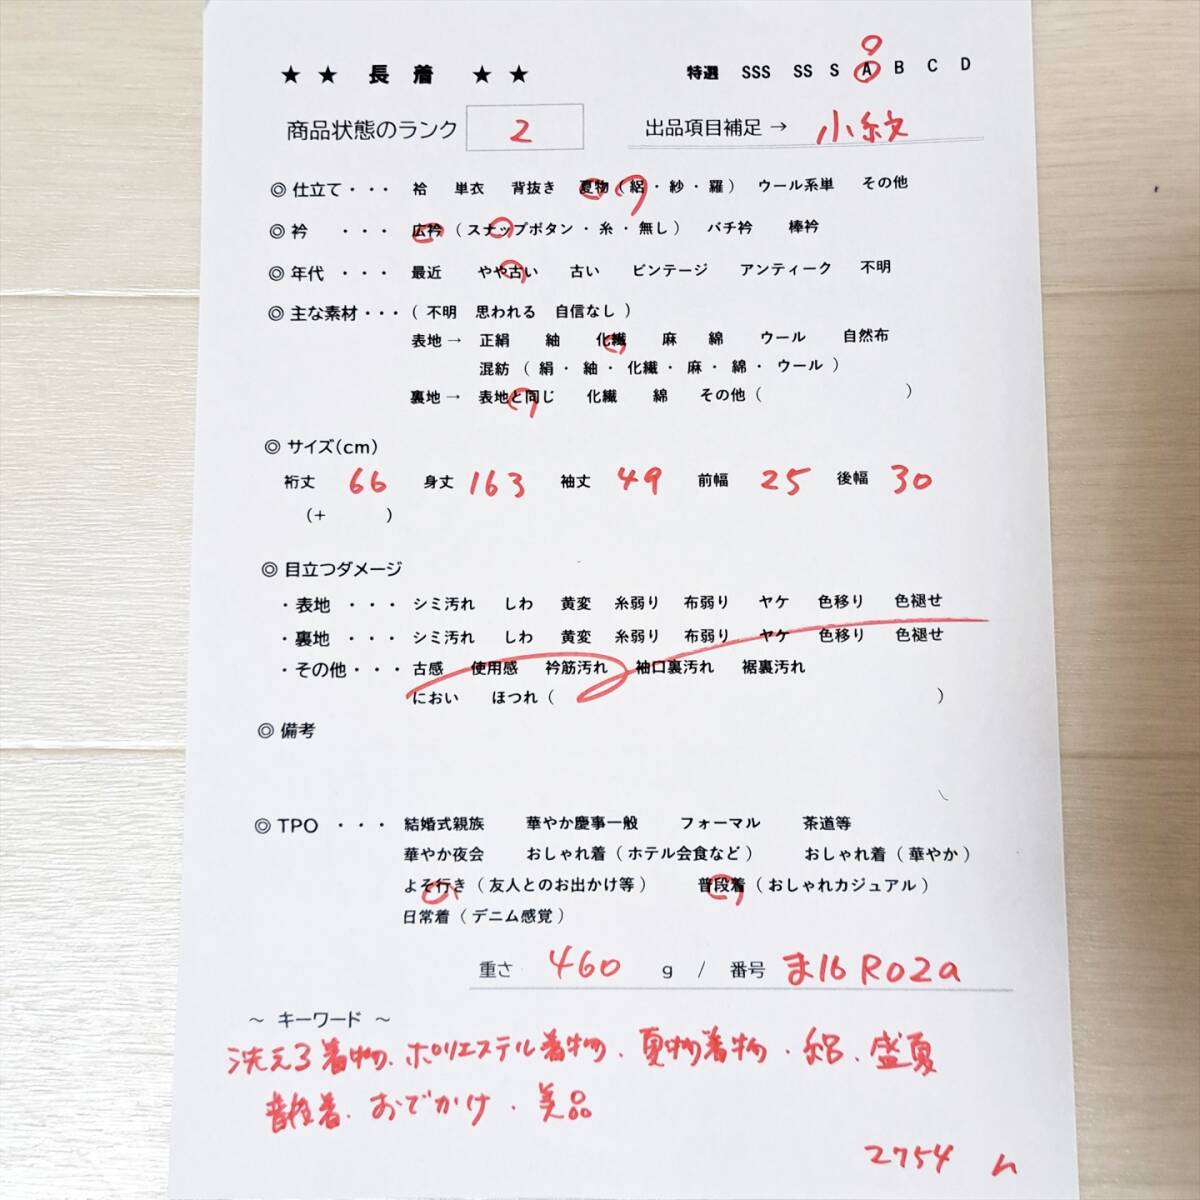 ★ ★ 長 着 ★ ★ 特選 SSS SS S A B C D
商品状態のランク 2 出品項目補足→ 小紋
◎ 仕立て・・・ 袷 単衣 背抜き 夏物（絽・紗・羅） ウール系単 その他
◎ 衿 ・・・ 広衿（スナップボタン・糸・無し） バチ衿 棒衿
◎ 年代 ・・・ 最近 やや古い 古い ビンテージ アンティーク 不明
◎ 主な素材・・・（不明 思われる 自信なし）
表地→ 正絹 紬 化繊 麻 綿 ウール 自然布
混紡（絹・紬・化繊・麻・綿・ウール）
裏地→ 表地と同じ 化繊 綿 その他（ ）
◎ サイズ(cm)
裄丈 66 身丈 163 袖丈 49 前幅 25 後幅 30
（+ ）
◎ 目立つダメージ
・表地 ・・・ シミ汚れ しわ 黄変 糸弱り 布弱り ヤケ 色移り 色褪せ
・裏地 ・・・ シミ汚れ しわ 黄変 糸弱り 布弱り ヤケ 色移り 色褪せ
・その他・・・ 古感 使用感 衿筋汚れ 袖口裏汚れ 裾裏汚れ
におい ほつれ（ ）
◎ 備考
◎ TPO ・・・ 結婚式親族 華やか慶事一般 フォーマル 茶道等
華やか夜会 おしゃれ着（ホテル会食など） おしゃれ着（華やか）
よそ行き（友人とのお出かけ等） 普段着（おしゃれカジュアル）
日常着（デニム感覚）
重さ 460 g / 番号 ま16R02a
～ キーワード ～
洗える着物、ポリエステル着物、夏物着物・絽、盛夏
普段着、おでかけ・美品
2754 h